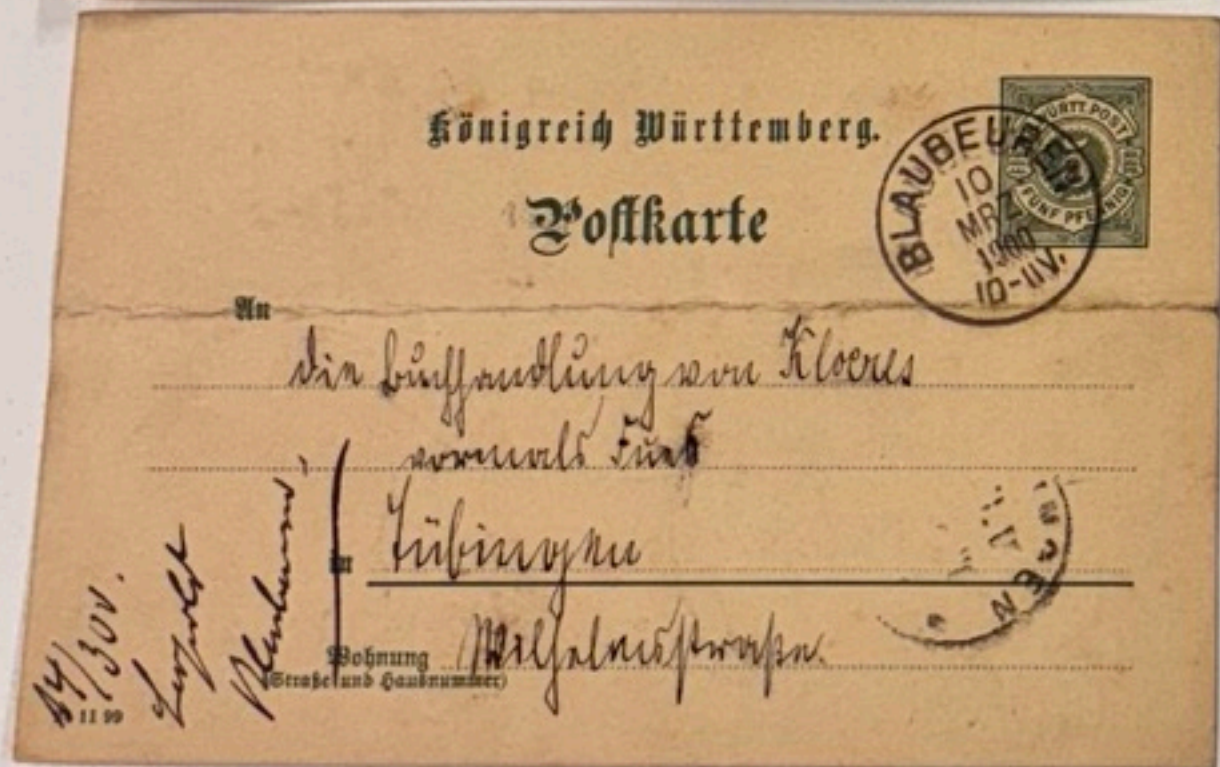 Königreich Württemberg.
Postkarte
WÜRTT. POST
FÜNF PFENNIG
BLAUBEUREN
10
MRZ
1900
10-11V.
An
die Buchhandlung von Kloeres
vormals Fues
in Tübingen
Wohnung Wilhelmsstraße.
(Straße und Hausnummer)
11 99